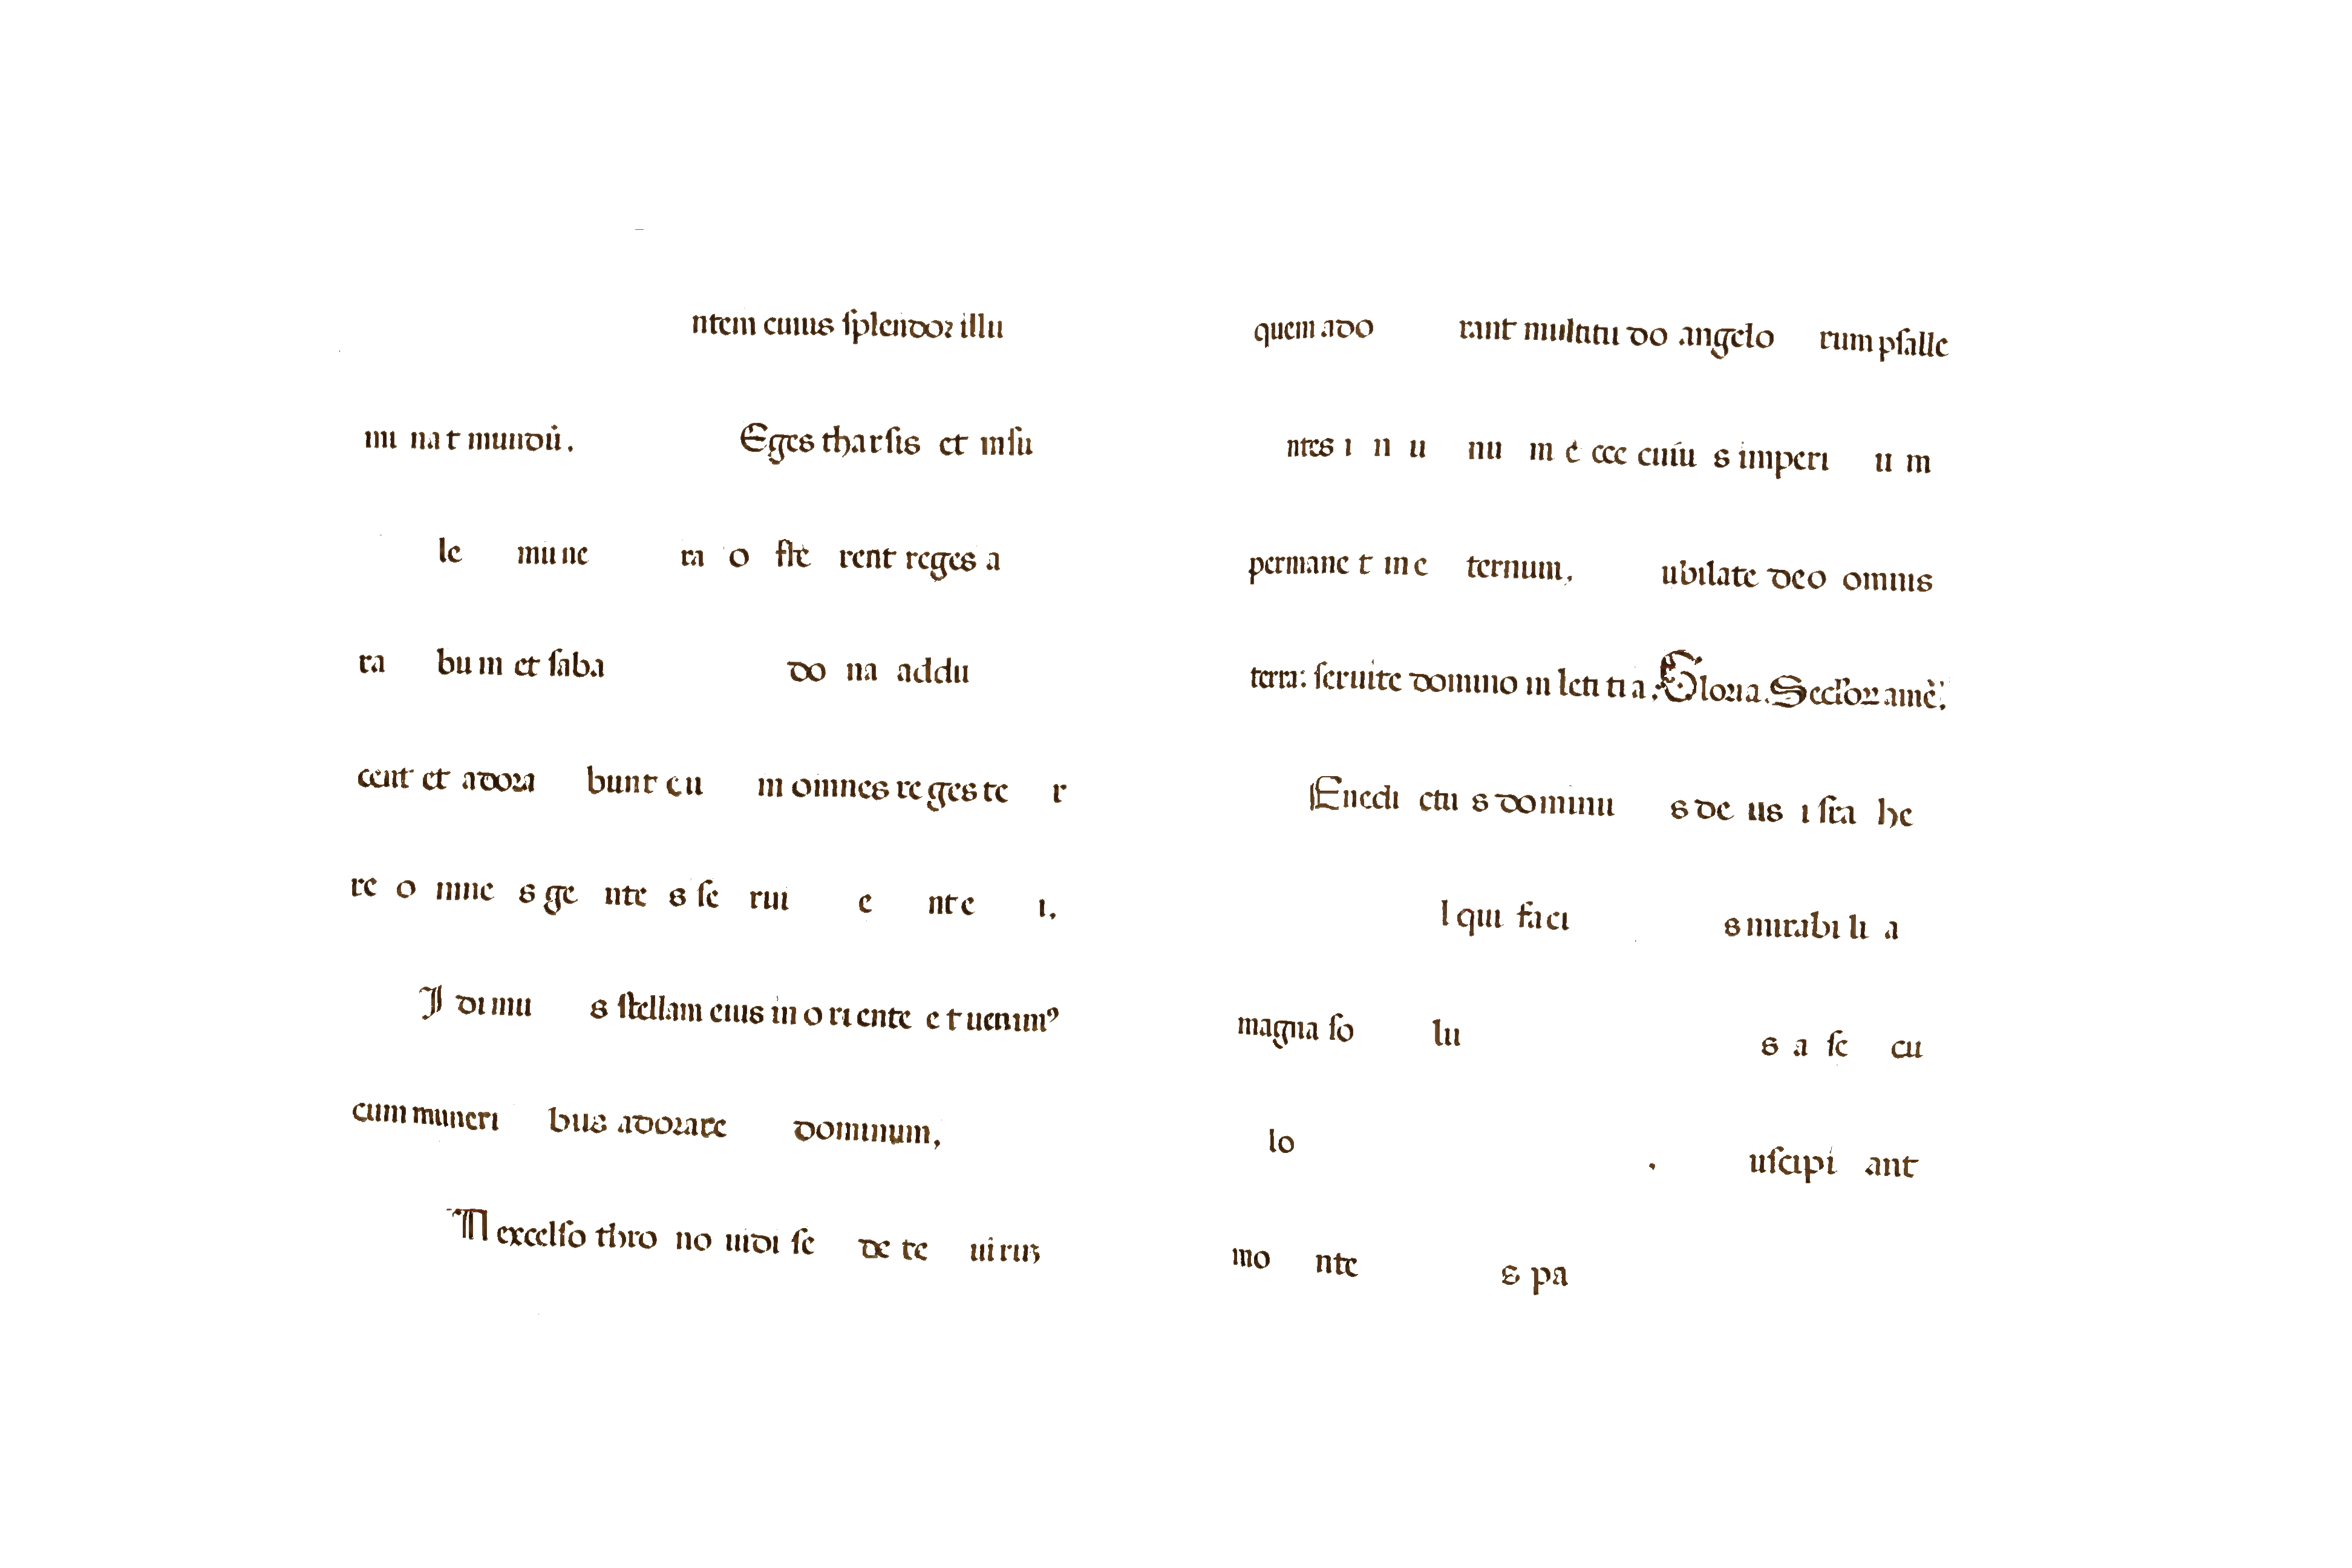 ntem cuius ſplendoꝛ illu
mi na t mundū.
Eges tharſis et inſu
le mu ne ra o ffe rent reges a
ra bu m et ſaba do na addu
cent et adoꝛa bunt e u m omnes re ges te r
re o mne s ge nte s ſe rui e nt e i.
I di mu s ſtellam eius in o ri ente e t uenimꝰ
cum muneri bus adoꝛare dominum,
IN excelſo thro no uidi ſe de te uirū
quem ado rant multitu do angelo rum pſalle
ntes i n u nu m é cce cuiu s imperi u m
permane t in e ternum. ubilate deo omnis
terra: ſeruite domino in leti ti a. Gloꝛia. Secl'oꝝ amē.
Enedi ctu s dominu s de us i ſra he
l qui faci s mirabi li a
magna ſo lu s a ſe cu
lo . uſcipi ant
mo nte s pa